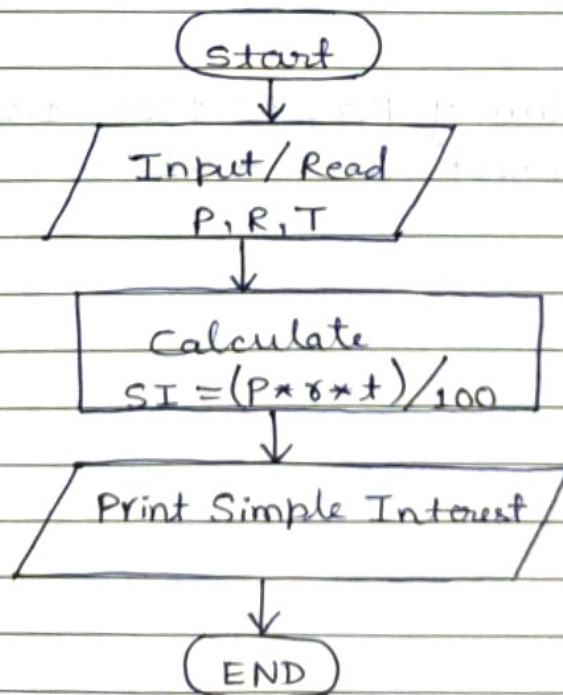 Start
Input/Read
P, R, T
Calculate
SI = (P* r* t)/100
Print Simple Interest
END